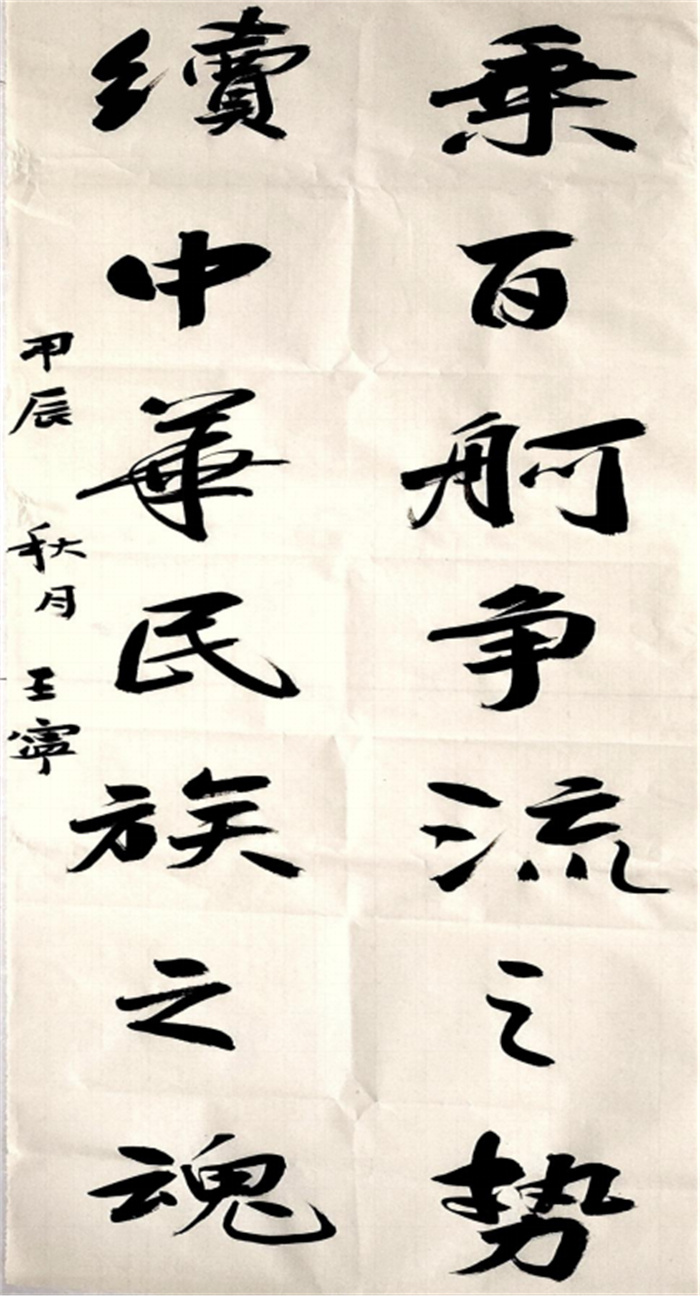 乘百舸争流之势
續中華民族之魂
甲辰 秋月 王寧